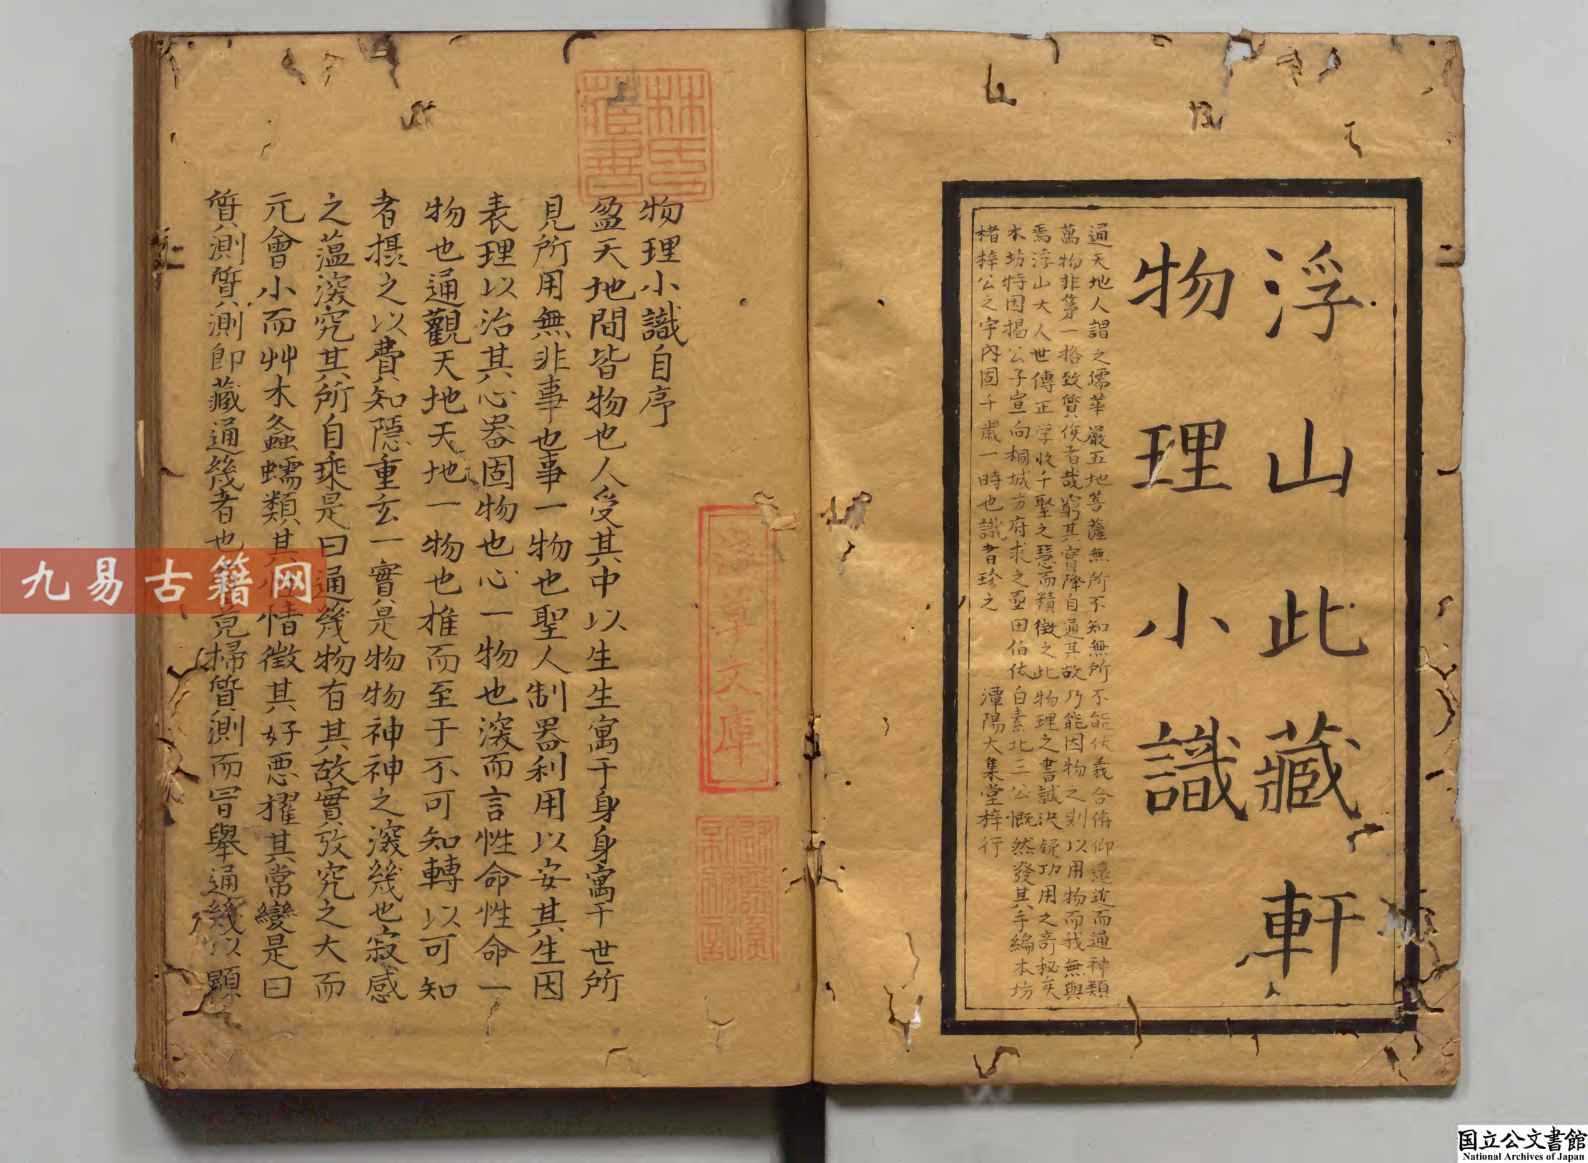 浮山此藏軒
物理小識
通天地人謂之儒華嚴五地菩薩無所不知無所不能伏羲合俯仰遠近而通神類
萬物非第一格致質俟者哉窮其實際自通其故乃能因物之則以用物而我無與
焉浮山大人世傳正學收千聖之慧而積徵之此物理之書誠決錠功用之奇秘矣
本坊特因揭公子宣向桐城方府求之亟因伯依白素北三公慨然發其手編本坊
楮梓公之宇內固千歲一時也識者珍之 潭陽大集堂梓行
林氏
藏書
物理小識自序
盈天地間皆物也人受其中以生生寓于身身寓于世所
見所用無非事也事一物也聖人制器利用以安其生因
表理以治其心器固物也心一物也深而言性命性命一
物也通觀天地天地一物也推而至于不可知轉以可知
者攝之以費知隱重玄一實是物物神神之深幾也寂感
之蘊深究其所自來是曰通幾物有其故實考究之大而
元會小而艸木螽蠕類其性情徵其好惡推其常變是曰
質測質測即藏通幾者也有竟掃質測而冒舉通幾以顯
文庫
九易古籍网
国立公文書館
National Archives of Japan